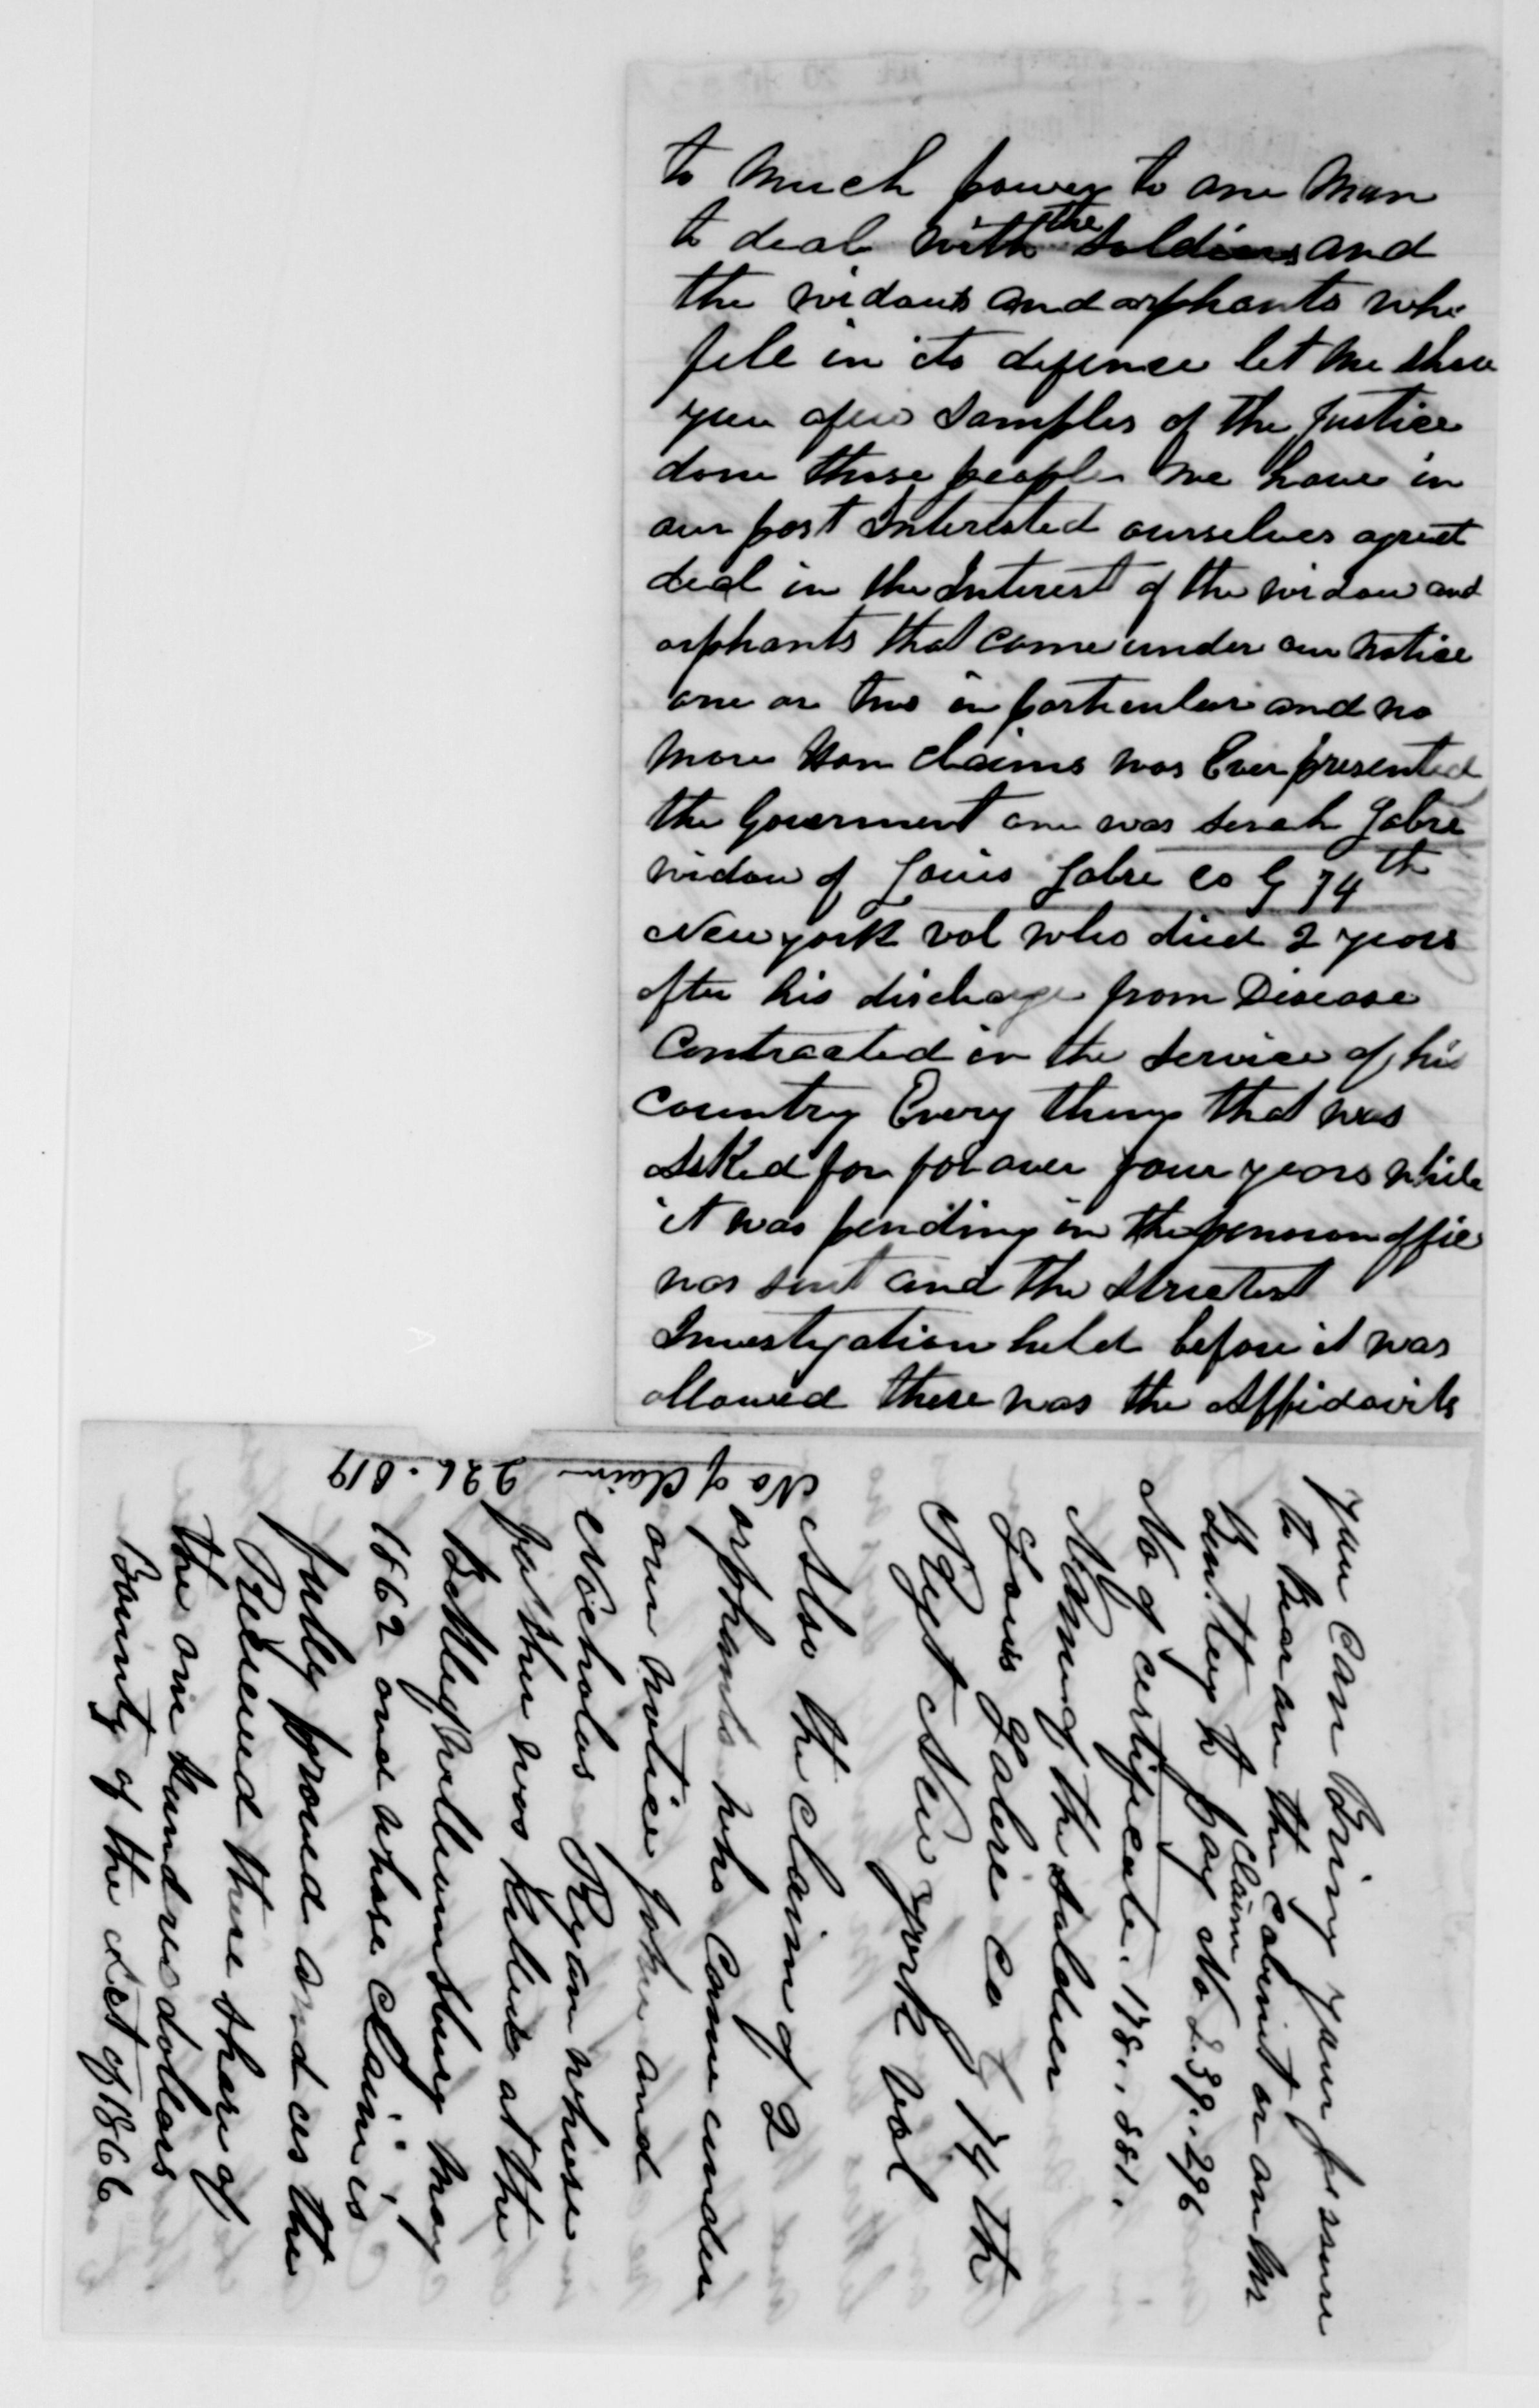 to much power to one man
to deal with the soldiers and
the widows and orphants who
fell in its defence let me show
you afew Samples of the Justice
done these people we have in
our post Interested ourselves agreet
deal in the Interest of the widow and
orphants that come under our notice
one or two in particular and no
more Hon claims was Ever presented
the Government one was Serah Jabre
widow of Louis Jabre Co G 74th
New york vol who died 2 years
after his discharge from Disease
Contracted in the Service of his
country Every thing that was
Asked for for over four years while
it was pending in the pension office
was sent and the strictest
Investigation held before it was
allowed there was the Affidavits
you can Bring your pressure
to Bear on the Cabinet or on Mr
Bentley to pay claim No 239.296
No of certificate. 178.881.
Name of the Soldier
Louis Jabre Co G 74 th
Regt New york vol
Also the claim of 2
orphants who Came under
our notice John and
Nicholas Ryan whose
father was killed at the
Battleof williumsburg may
1862 and whose claim is
fully proved and as the
Recieved there share of
the one hundred dollars
Bounty of the Act of 1866
No of Claim 226.819